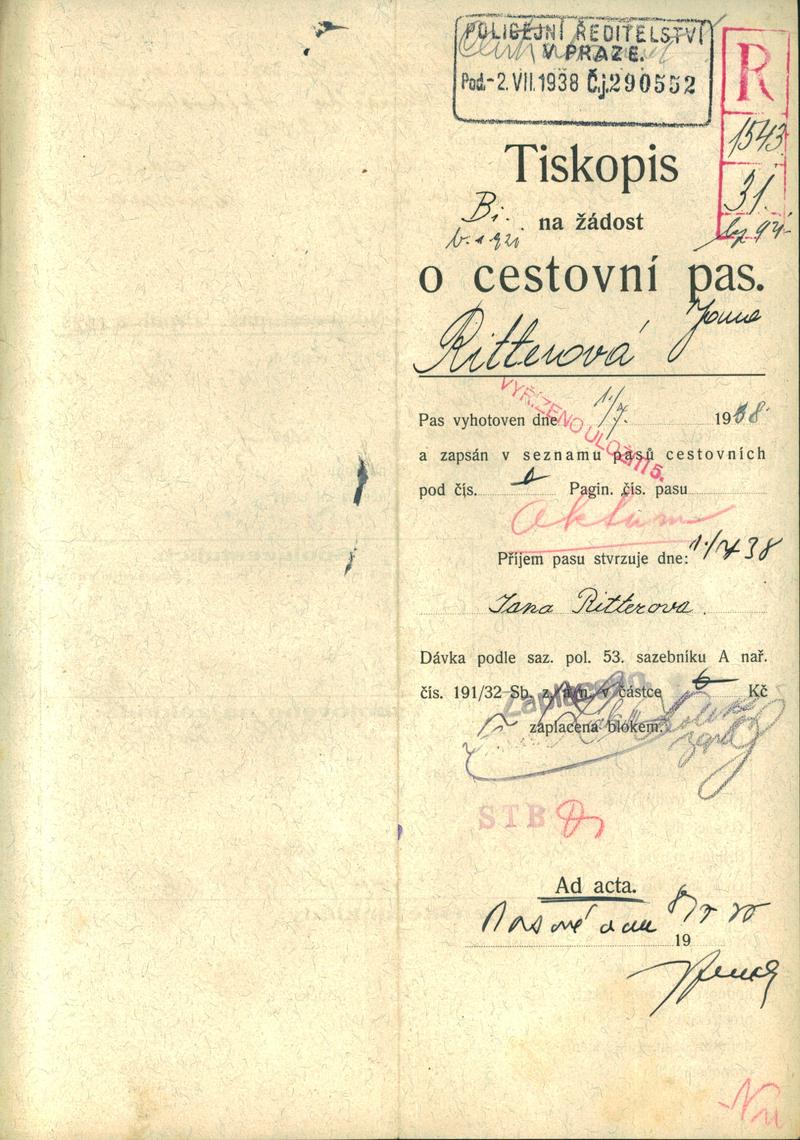 POLICEJNÍ ŘEDITELSTVÍ
V PRAZE.
Pod.-2.VII.1938 Č.j.290552
R
1543
31.
Tiskopis
Bi.
na žádost
o cestovní pas.
Jana
Ritterová
VYŘÍZENO ULOŽITI 5.
Pas vyhotoven dne 1./7. 1938
a zapsán v seznamu pasů cestovních
pod čís. Pagin. čís. pasu
Aktum
Příjem pasu stvrzuje dne: 1./7 38
Jana Ritterova.
Dávka podle saz. pol. 53. sazebníku A nař.
čís. 191/32 Sb. z. a n. v částce Kč
Zaplaceno
zaplacena blokem.
STB
Ad acta.
19